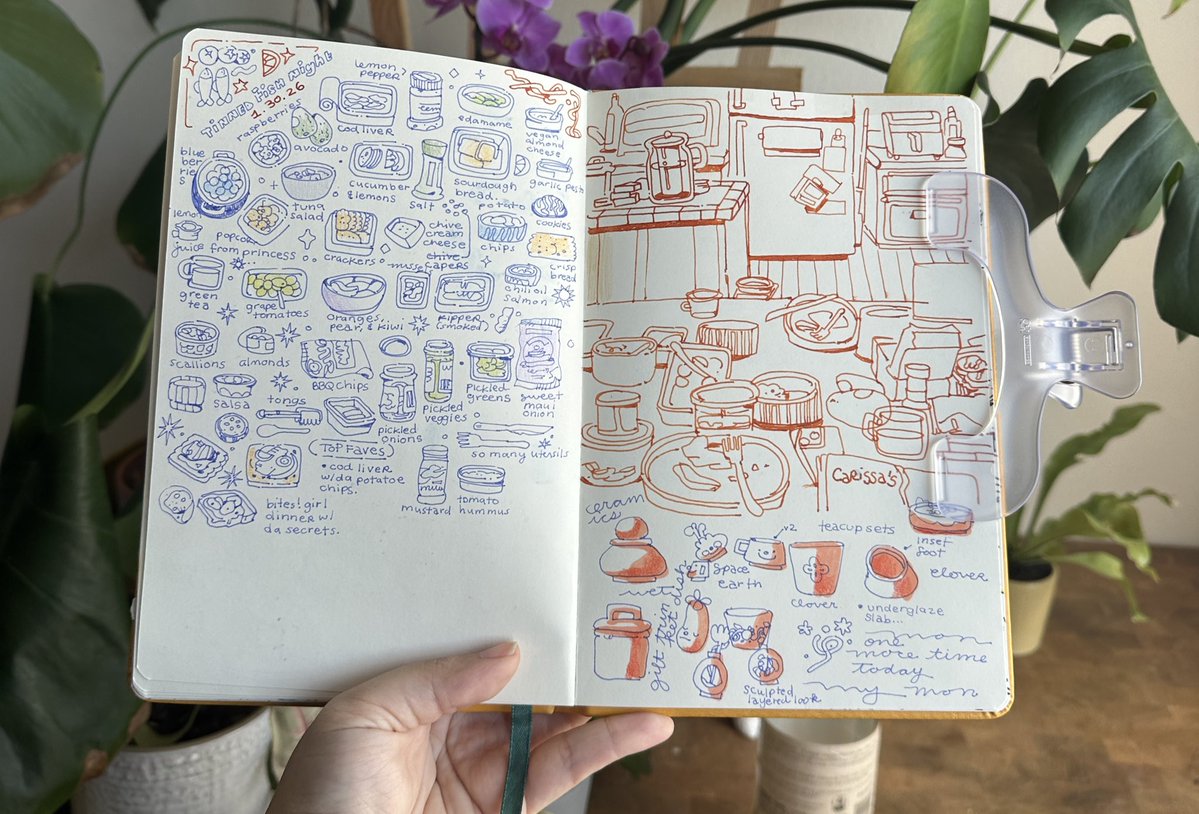 TINNED FISH NIGHT
1.30.26
lemon
pepper
cod liver
edamame
vegan
almond
cheese
raspberries
avocado
blue
ber
rie
s
cucumber
& lemons
salt
sourdough
bread
garlic pesto
lemon
juice
tuna
salad
popcorn
from princess
crackers
chive
cream
cheese
potato
chips
cookies
crisp
bread
green
tea
grape
tomatoes
oranges,
pear, & kiwi
chive
capers
kipper
(smoked)
chili oil
salmon
scallions
almonds
BBQ chips
pickled
veggies
pickled
greens
sweet
maui
onion
salsa
tongs
pickled
onions
so many utensils
TOP FAVES
• cod liver
w/ da potatoe
chips.
bites! girl
dinner w/
da secrets.
mustard
tomato
hummus
Carissa's
ceram
ics
space
earth
v2
teacup sets
inset
foot
clover
clover
• underglaze
slab...
trin
ket dish
sculpted
layered look
mon
one
more time
today
my mon